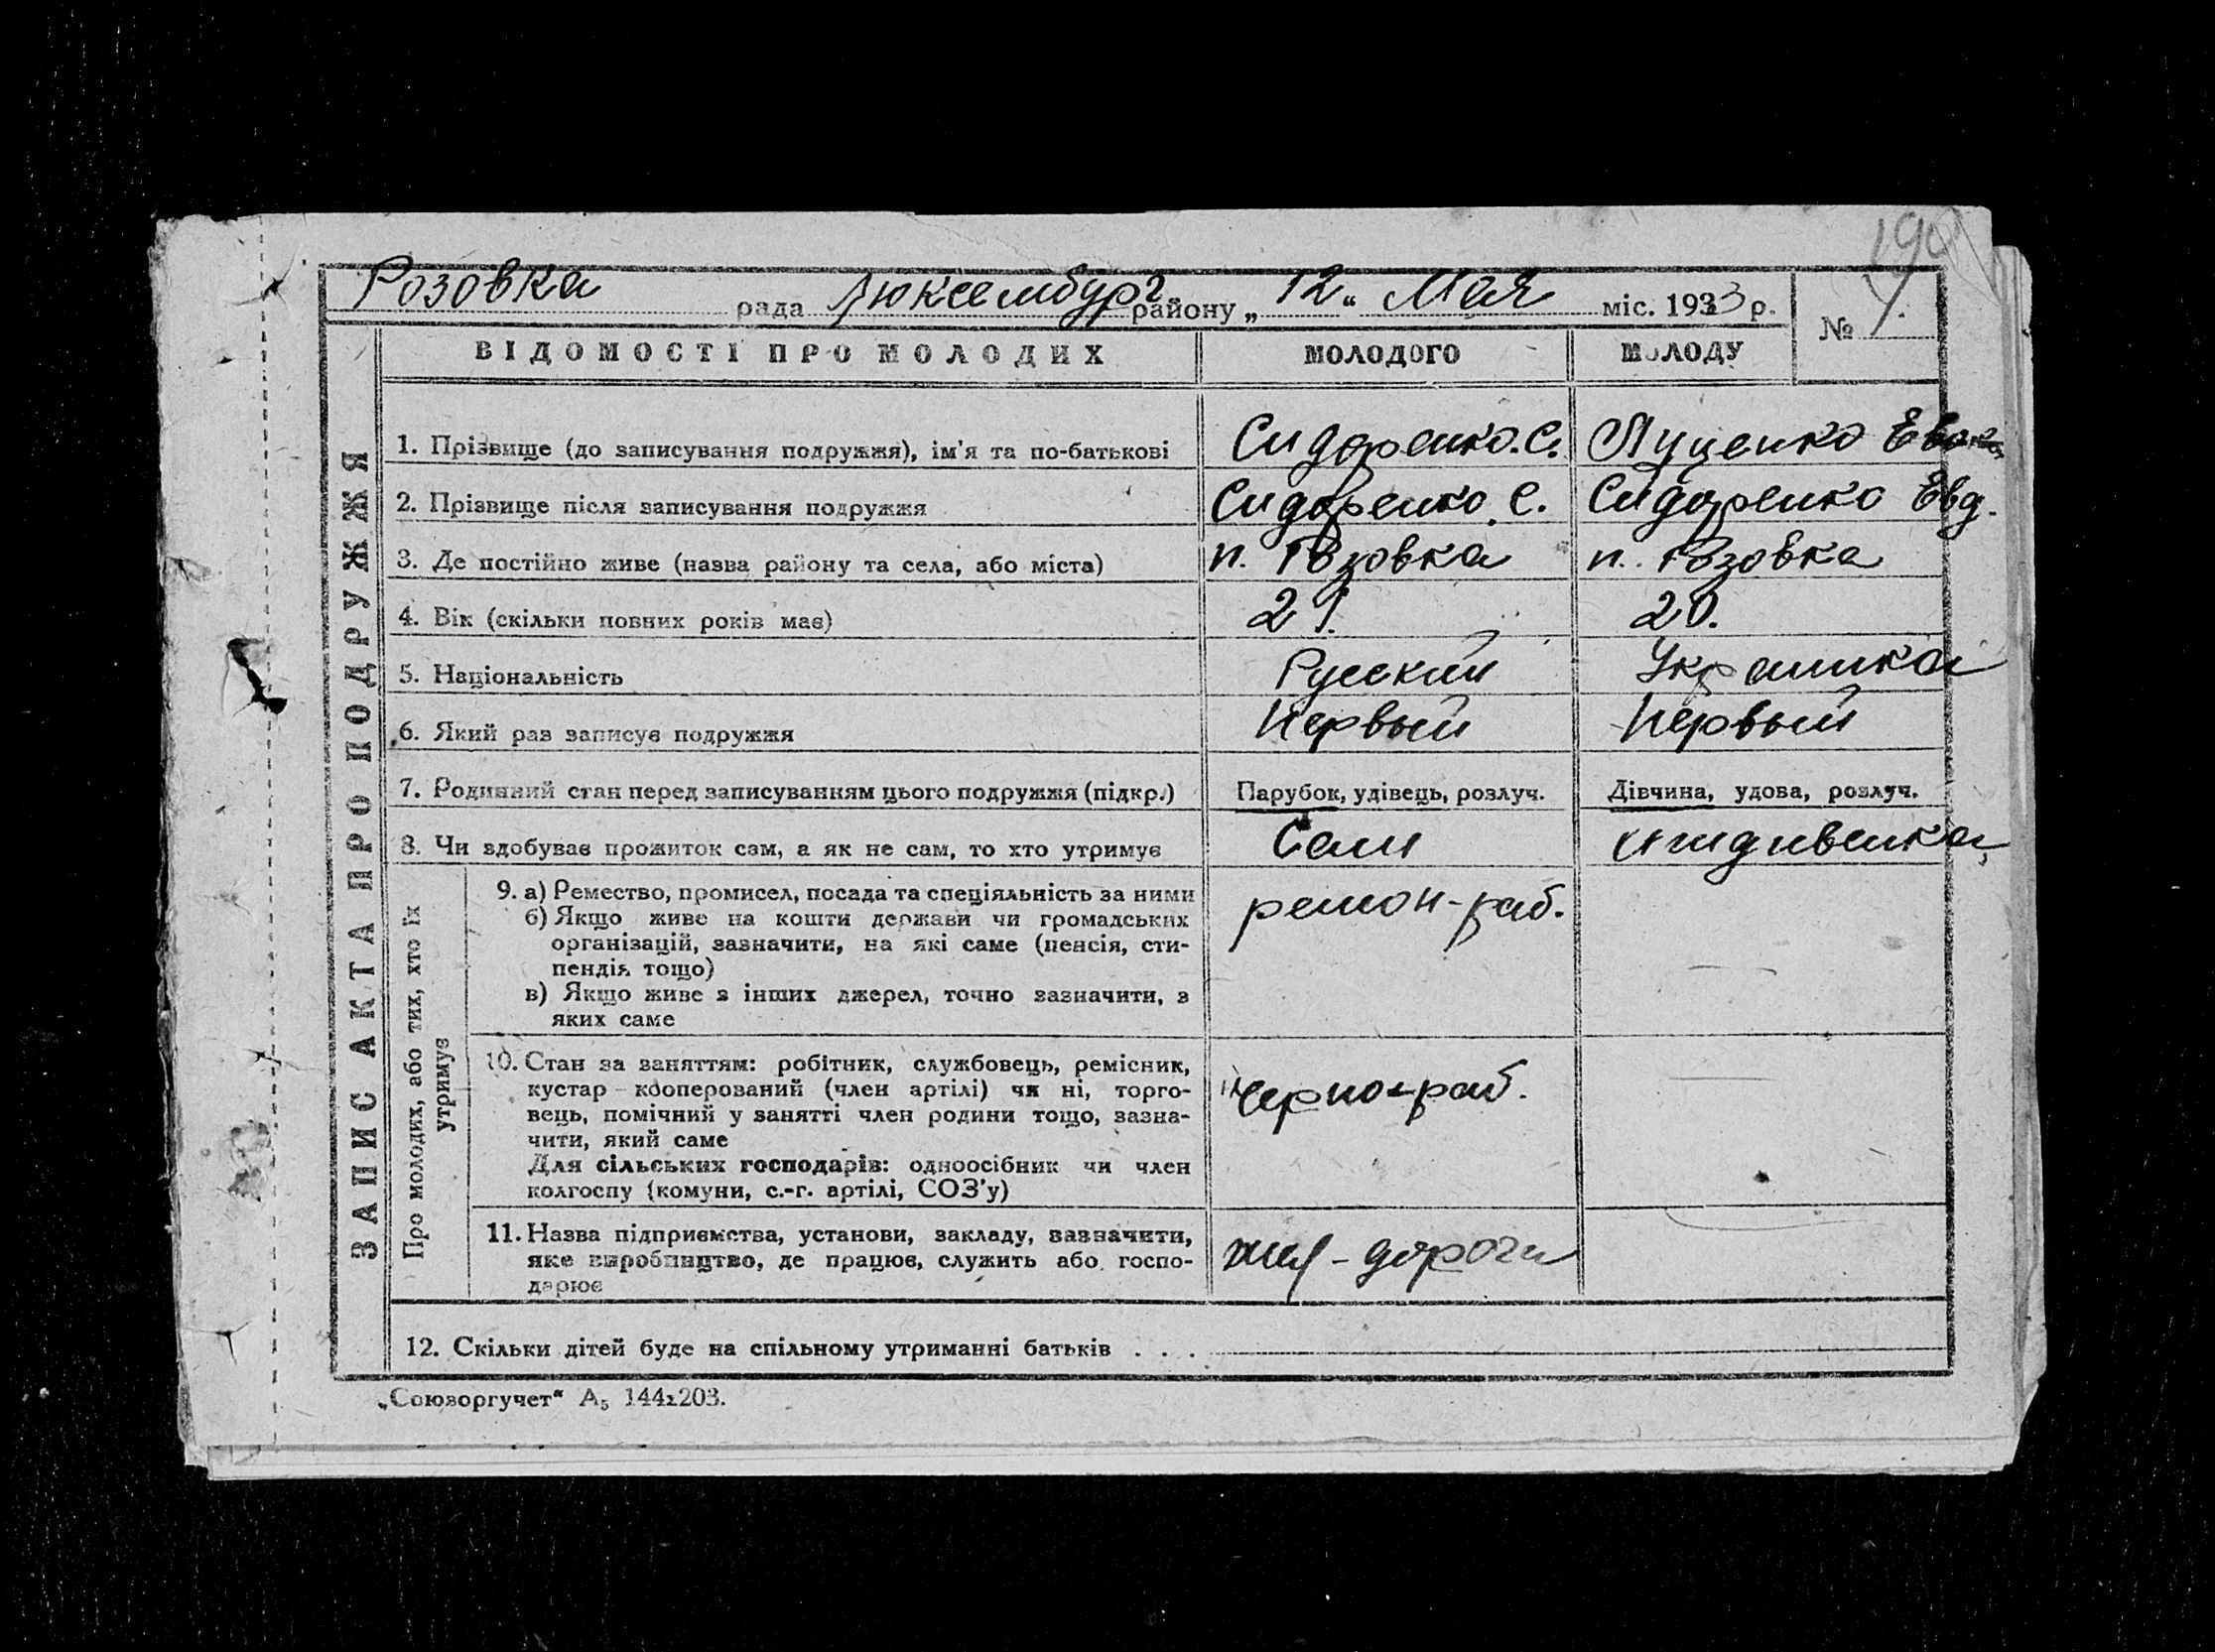 Розовка рада Люксембург. району „12“ Мая міс. 1933 р.
№ 7.
ВІДОМОСТІ ПРО МОЛОДИХ МОЛОДОГО МОЛОДУ
ЗАПИС АКТА ПРО ПОДРУЖЖЯ
1. Прізвище (до записування подружжя), ім'я та по-батькові Сидоренко. С. Луценко
2. Прізвище після записування подружжя Сидоренко. С. Сидоренко Евд.
3. Де постійно живе (назва району та села, або міста) п. Розовка п. Розовка
4. Вік (скільки повних років має) 20.
5. Національність Русский Украинка
6. Який раз записує подружжя Первый Первый
7. Родинний стан перед записуванням цього подружжя (підкр.) Парубок, удівець, розлуч. Дівчина, удова, розлуч.
8. Чи здобуває прожиток сам, а як не сам, то хто утримує Сам иждивенка
Про молодих, або тих, хто їх утримує
9. а) Ремество, промисел, посада та спеціяльність за ними ремон-раб.
б) Якщо живе на кошти держави чи громадських
організацій, зазначити, на які саме (пенсія, сти-
пендія тощо)
в) Якщо живе з інших джерел, точно зазначити, з
яких саме
10. Стан за заняттям: робітник, службовець, ремісник,
кустар кооперований (член артілі) чи ні, торго- черно-раб.
вець, помічний у занятті член родини тощо, зазна-
чити, який саме
Для сільських господарів: одноосібник чи член
колгоспу (комуни, с.-г. артілі, СОЗ'у)
11. Назва підприємства, установи, закладу, зазначити,
яке виробництво, де працює, служить або госпо- жел-дороги
дарює
12. Скільки дітей буде на спільному утриманні батьків . . .
„Союзоргучет“ А₅ 144х203.